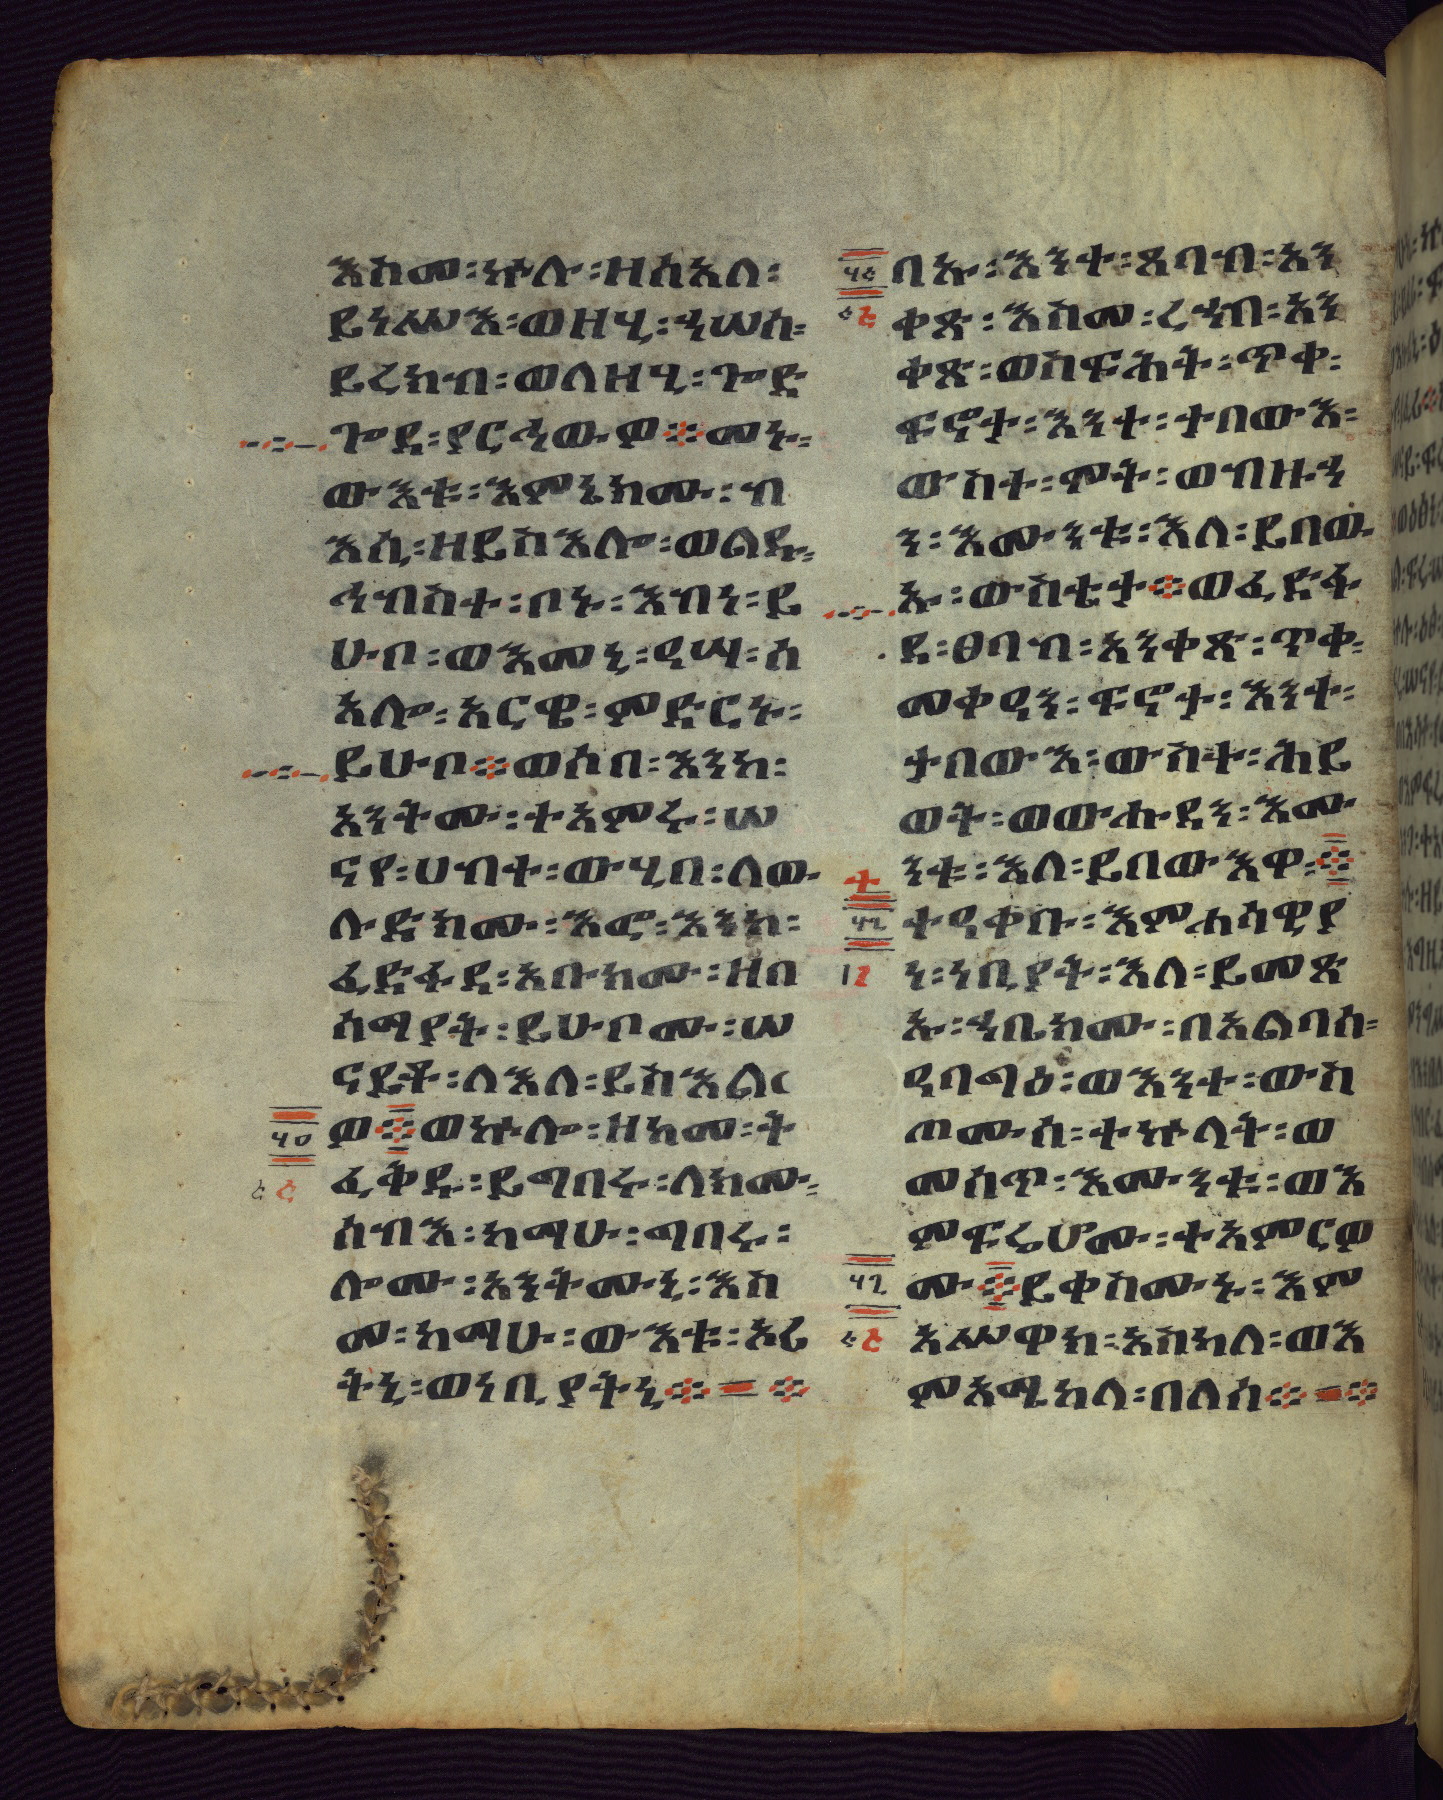 እስመ፡ኵሉ፡ዘሰአለ፡
ይነሥእ፡ወዘሂ፡ኀሠሰ፡
ይረክብ፡ወለዘሂ፡ጐድ
ጐደ፡ያርኅውዎ፨መኑ፡
ውእቱ፡እምኔክሙ፡ብ
እሲ፡ዘይስእሎ፡ወልዱ፡
ኅብስተ፡ቦኑ፡እብነ፡ይ
ሁቦ፡ወእመኒ፡ዓሣ፡ሰ
አሎ፡አርዌ፡ምድርኑ፡
ይሁቦ፨ወሶበ፡እንከ፡
አንትሙ፡ተአምሩ፡ሠ
ናየ፡ሀብተ፡ውሂበ፡ለው
ሉድክሙ፡እፎ፡እንከ፡
ፈድፋደ፡አቡክሙ፡ዘበ
ሰማያት፡ይሁቦሙ፡ሠ
ናይተ፡ለእለ፡ይስእልዎ
፨ወኵሎ፡ዘከመ፡ት
ፈቅዱ፡ይግበሩ፡ለክሙ፡
ሰብእ፡ከማሁ፡ግበሩ፡
ሎሙ፡አንትሙኒ፡እስ
መ፡ከማሁ፡ውእቱ፡ኦሪ
ትኒ፡ወነቢያትኒ፨፨
ባኡ፡እንተ፡ጸባብ፡አን
ቀጽ፡እስመ፡ረኃብ፡አን
ቀጽ፡ወስፍሕት፡ጥቀ፡
ፍኖት፡እንተ፡ተበውእ፡
ውስተ፡ሞት፡ወብዙኃ
ን፡እሙንቱ፡እለ፡ይበው
ኡ፡ውስቴታ፨ወፈድፋ
ደ፡ፀባብ፡አንቀጽ፡ጥቀ፡
መቀዓን፡ፍኖት፡እንተ፡
ታበውእ፡ውስተ፡ሕይ
ወት፡ወውሑዳን፡እሙ
ንቱ፡እለ፡ይበውእዋ፨
ተዓቀቡ፡እምሐሳዊያ
ን፡ነቢያት፡እለ፡ይመጽ
ኡ፡ኃቤክሙ፡በአልባሰ፡
ዓባግዕ፡ወእንተ፡ውስ
ጦሙሰ፡ተኵላት፡ወ
መሰጥ፡እሙንቱ፡ወእ
ምፍሬሆሙ፡ተአምርዎ
ሙ፨ይቀስሙኑ፡እም
አሥዋክ፡አስካለ፡ወእ
ምአሜከላ፡በለሰ፨፨